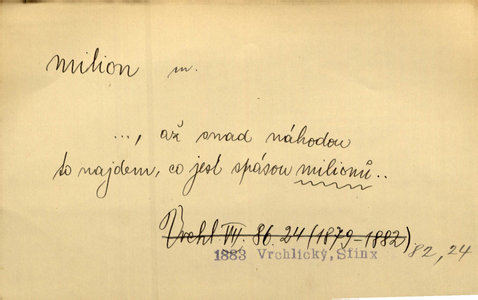 milion m.
..., až snad náhodou
to najdem, co jest spásou milionů..
Vrchl. VII. 86. 24 (1879-1882) 82, 24
1883 Vrchlický, Sfinx